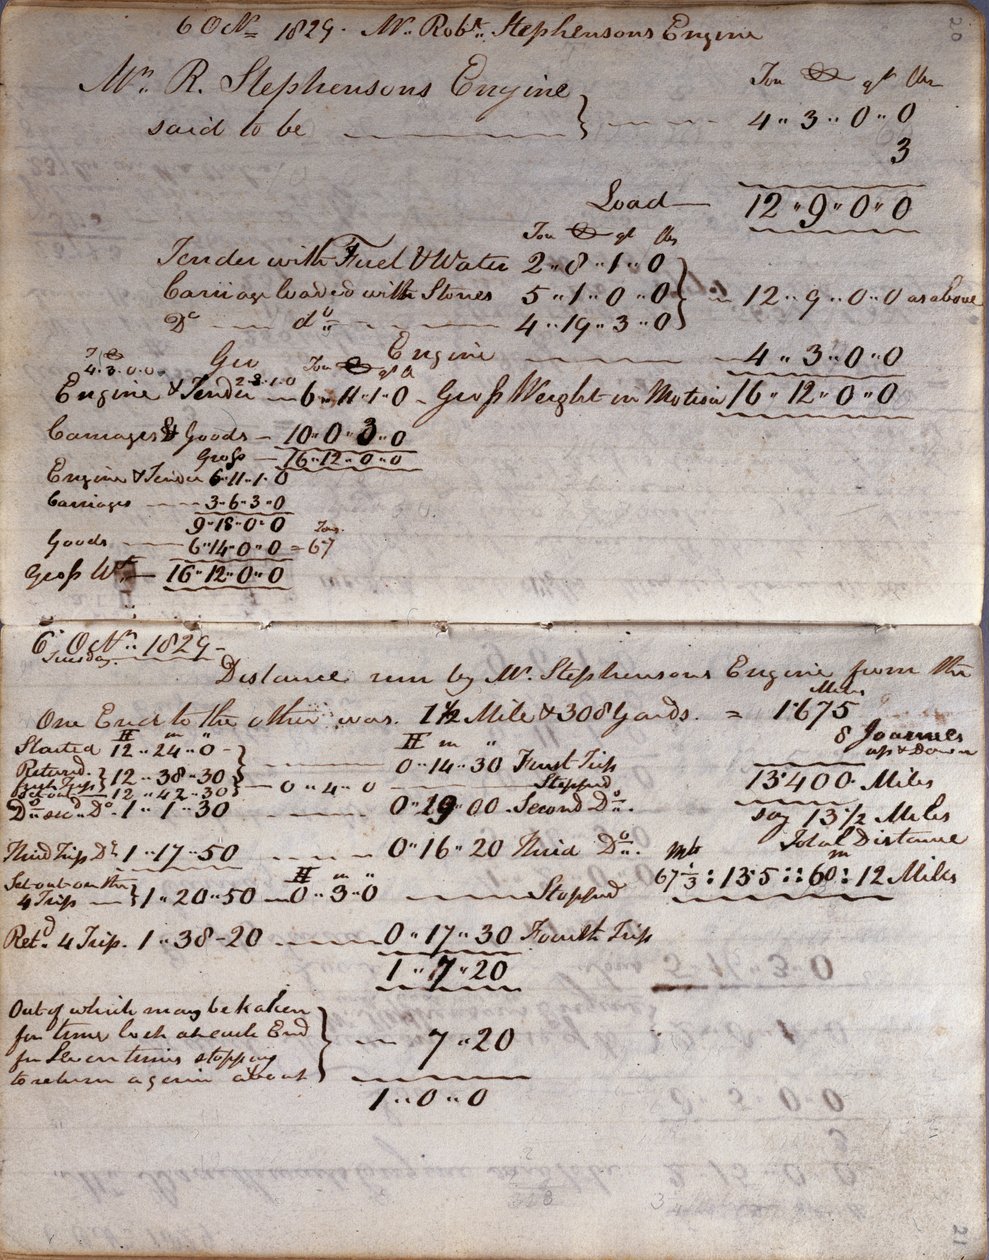 6 Octr. 1829. Mr. Robt. Stephensons Engine
20
Ton Ct qr lbs
Mr. R. Stephensons Engine
said to be 4 " 3 " 0 " 0
3
Load 12 " 9 " 0 " 0
Ton Ct qr lbs
Tender with Fuel & Water 2 " 8 " 1 " 0
Carriage loaded with Stones 5 " 1 " 0 " 0 12 " 9 " 0 " 0 as above
Do do 4 " 19 " 3 " 0
Gro Engine 4 " 3 " 0 " 0
T Ct Ton Ct qr
4.3.0.0 2.8.1.0
Engine & Tender 6 " 11 " 1 " 0 Gross Weight in Motion 16 " 12 " 0 " 0
Carriages & Goods 10 " 0 " 3 " 0
Gross 16 " 12 " 0 " 0
Engine & Tender 6 " 11 " 1 " 0
Carriages 3 " 6 " 3 " 0
9 " 18 " 0 " 0
Tons
Goods 6 " 14 " 0 " 0 = 67
Gross Wt 16 " 12 " 0 " 0
6 Octr. 1829
Tuesday
Distance run by Mr. Stephensons Engine from the
Miles
One End to the other was 1 1/2 Mile & 308 Yards = 1.675
8 Journies
up & down
H m "
Started 12 " 24 " 0
H m "
Returned First Trip 12 " 38 " 30 0 " 14 " 30 First Trip
13.400 Miles
Set out 12 " 42 " 30 0 " 4 " 0 Stopped
Do. sec. Do. 1 " 1 " 30 0 " 19 " 00 Second Do.
say 13 1/2 Miles
Total Distance
Third Trip Do. 1 " 17 " 50 0 " 16 " 20 Third Do.
m
67 1/3 : 13.5 :: 60 : 12 Miles
Set out on the
H m "
4 Trip 1 " 20 " 50 0 " 3 " 0 Stopped
Retd. 4 Trip. 1 " 38 " 20 0 " 17 " 30 Fourth Trip
1 " 7 " 20
Out of which may be taken
for time lost at each End
for Seven times stopping
to return again about 7 " 20
1 " 0 " 0
21